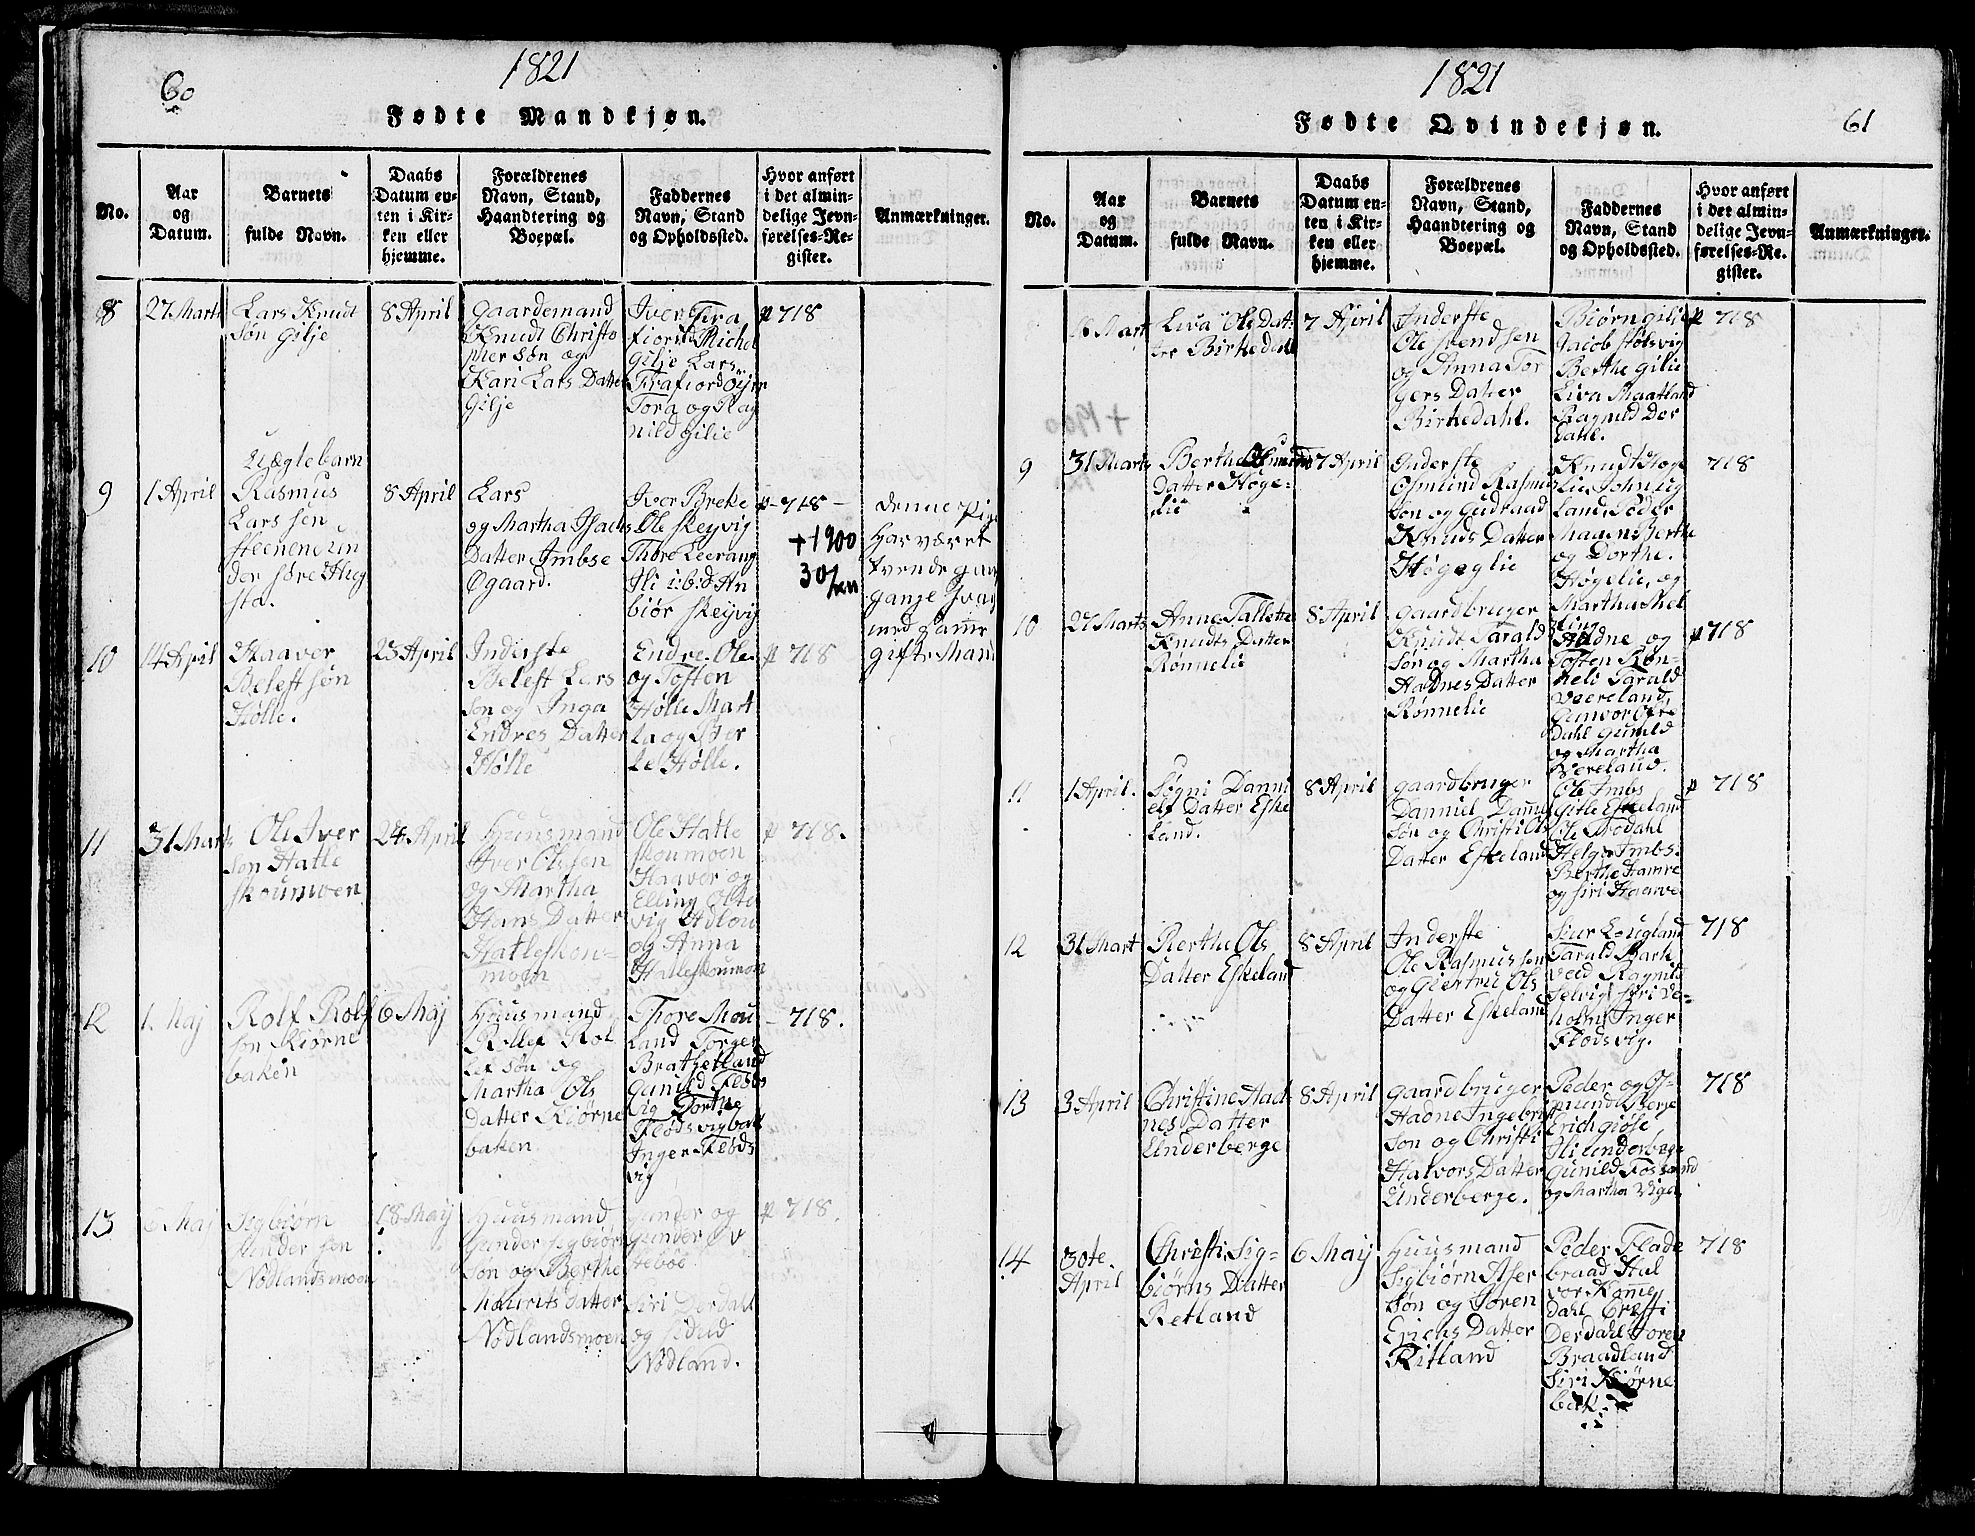 60
1821
Fødte Mandkjøn.
No.
Aar
og
Datum.
Barnets
fulde Navn.
Daabs
Datum en-
ten i Kir-
ken eller
hjemme.
Forældrenes
Navn, Stand,
Haandtering og
Boepæl.
Faddernes
Navn, Stand
og Opholdssted.
Hvor anført
i det almin-
delige Jevn-
førelses-Re-
gister.
Anmærkninger.
8
27 Marts
Lars Knudt
søn Gilje
8 April
Gaardemand
Knudt Christo
pher søn og
Kari Lars Datter
Gilje
Iver Fra
fiord Michel
Gilje Lars
Frafiord
Tora og Rag
nild Gilie
p 718
9
1 April
Uægtebarn
Rasmus
Lars sen
Steenene un
der søre
sta.
8 April
Lars
og Martha Isachs
Datter Imbse
Øgaard.
Iver Breke
Ole Skeyvig
Thore Leerang
Sli i:b:d An
biør Skeyvig
p-718-
+1900
30/
denne Pige
har været
tvende gan
gange
med samme
Gifte Mand
10
14 April
Staaver
Belest søn
Hølle.
23 April
Inderste
Belest Lars
søn og Inga
Endres Datter
Hølle
Endre Ole
og Tosten
Hølle Mart
ta og Ber
te Hølle.
p 718
11
31 Marts
Ole Iver
søn Hatle
skoumoen
24 April
Huusmand
Iver Olesen
og Martha
Hans Datter
Hatleskou-
moen
Ole Hatle
skoumoen
Haaver og
Elling Olte
vig
og Anna
Hatleskoumoen
p 718.
12
1. Maj
Rolf Rolf
søn Kiørne
baken
6 Maj
Huusmand
Rollef Rol
lef søn og
Martha Ols
datter Kiørne
baken
Thore Mou
land Torger
Bratsetland
Gunild Fløds
vig Dorthe
Flødsvigbak
Inger Fløds
vig
- 718.
13
6 Maj
Sigbiørn
Gunder sen
Nødlandsmoen
18 Maij
Huusmand
Gunder Sigbiørn
søn og Berthe
Mourits datter
Nødlandsmoen
Gunder og
Gunder
stebøe
Siri Derdahl
og Sidud
Nødland.
p 718.
1821
Fødte Qvindekjøn.
61
No.
Aar
og
Datum.
Barnets
fulde Navn.
Daabs
Datum en-
ten i Kir-
ken eller
hjemme.
Forældrenes
Navn, Stand,
Haandtering og
Boepæl.
Faddernes
Navn, Stand
og Opholdssted.
Hvor anført
i det almin-
delige Jevn-
førelses-Re-
gister.
Anmærkninger.
Mart
Liva Ols Dat
ter Birkedahl
7 April
Inderste
Ole Svendsen
og Anna Tor
gers Datter
Birkedahl.
Biørn Gilje
Jacob Stølsvig
Berthe Gilie
Liva Maatland
Ragnild Der
dahl.
p 718
+1900
9
31 Marts
Berthe Osmund
Datter Høge-
lie
7 April
Inderste
Osmund Rasmus
søn og Gudraad
Knuds Datter
Høgeglie
Knudt Høge
lie, John
land Peder
Mauen Berthe
og Dorthe.
Høgelie, og
Martha Mel
ting
718
10
27 Marts
Anne Tallette
Knudts Datter
Rønnelie
8 April
Gaardbruger
Knudt Tarald
søn og Martha
Hadnes Datter
Rønnelie
Hadne og
Tosten Røn-
neli Tarald
Væreland
Gunvor Øfre
Dahl Gunild
og Martha
Væreland.
p 718
11
1 April.
Søgni Danni
els Datter Eske
land.
8 April
Gaardbruger
Danniel Danniel
søn og Christi Ols
Datter Eskeland
Ole Imbs
Gitle Eskeland
Ole Trodahl
Helge Imbs.
Berthe Hamre
og Siri Haavve
p 718
12
31 Mart
Berthe Ols
Datter Eskeland
8 April
Inderste
Ole Rasmussen
og Giertru Ols
Datter Eskeland
Siur Lougland
Tarald Bark
ved Ragnild
Selvig Siri De-
holm Inger
Flødsvig.
718
13
3 April
Christine Had
nes Datter
Underberge
8 April
Gaardbruger
Hadne Ingebrigt
søn og Christi
Halvors Datter
Underberge.
Peder og Os-
mund Berge
Erich Giøse
Sli Underberge
Gunild Fossand
og Martha Viga
718
14
30te.
April
Christi Sig-
biørns Datter
Retland
6 Maij
Huusmand
Sigbiørn Aser
søn og Soren
Erichs Datter
Ritland
Peder Flade
braad Hal
vor Komme
dahl Cristi
Derdahl Soren
Braadland
Siri Kiørne
bak.
718